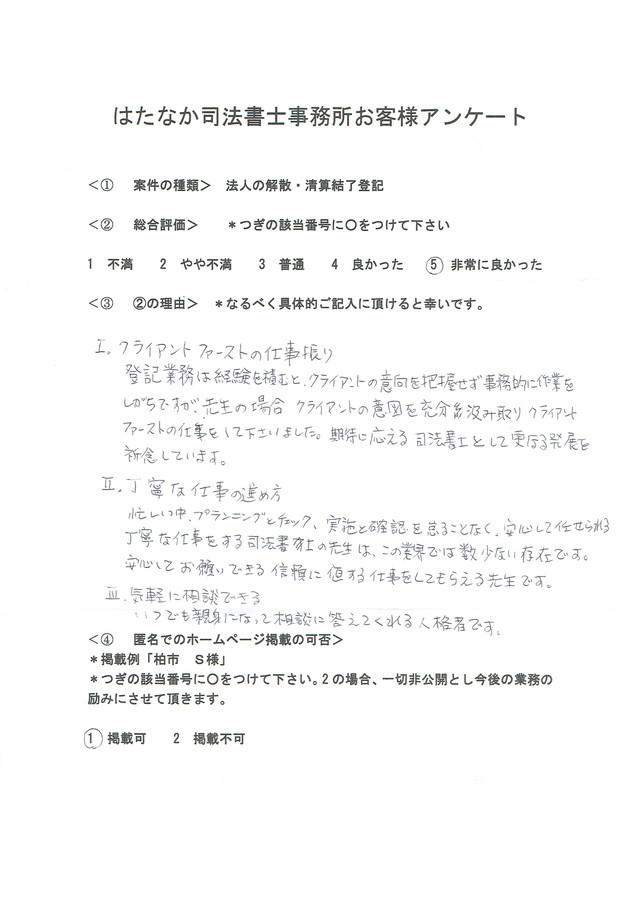 はたなか司法書士事務所お客様アンケート
＜①　案件の種類＞　法人の解散・清算結了登記
＜②　総合評価＞　＊つぎの該当番号に〇をつけて下さい
1　不満　2　やや不満　3　普通　4　良かった　⑤　非常に良かった
＜③　②の理由＞　＊なるべく具体的ご記入に頂けると幸いです。
Ⅰ. クライアントファーストの仕事振り
登記業務は経験を積むと、クライアントの意向を把握せず事務的に作業を
しがちですが、先生の場合 クライアントの意図を充分汲み取り クライアント
ファーストの仕事をして下さいました。期待に応える司法書士として更なる発展を
祈念しています。
Ⅱ. 丁寧な仕事の進め方
忙しい中、プランニングとチェック、実施と確認を怠ることなく、安心して任せられる
丁寧な仕事をする司法書士の先生は、この業界では数少ない存在です。
安心してお願いできる信頼に値する仕事をしてもらえる先生です。
Ⅲ. 気軽に相談できる
いつでも親身になって相談に答えてくれる人格者です。
＜④　匿名でのホームページ掲載の可否＞
＊掲載例「柏市　S様」
＊つぎの該当番号に〇をつけて下さい。2の場合、一切非公開とし今後の業務の
励みにさせて頂きます。
①　掲載可　2　掲載不可